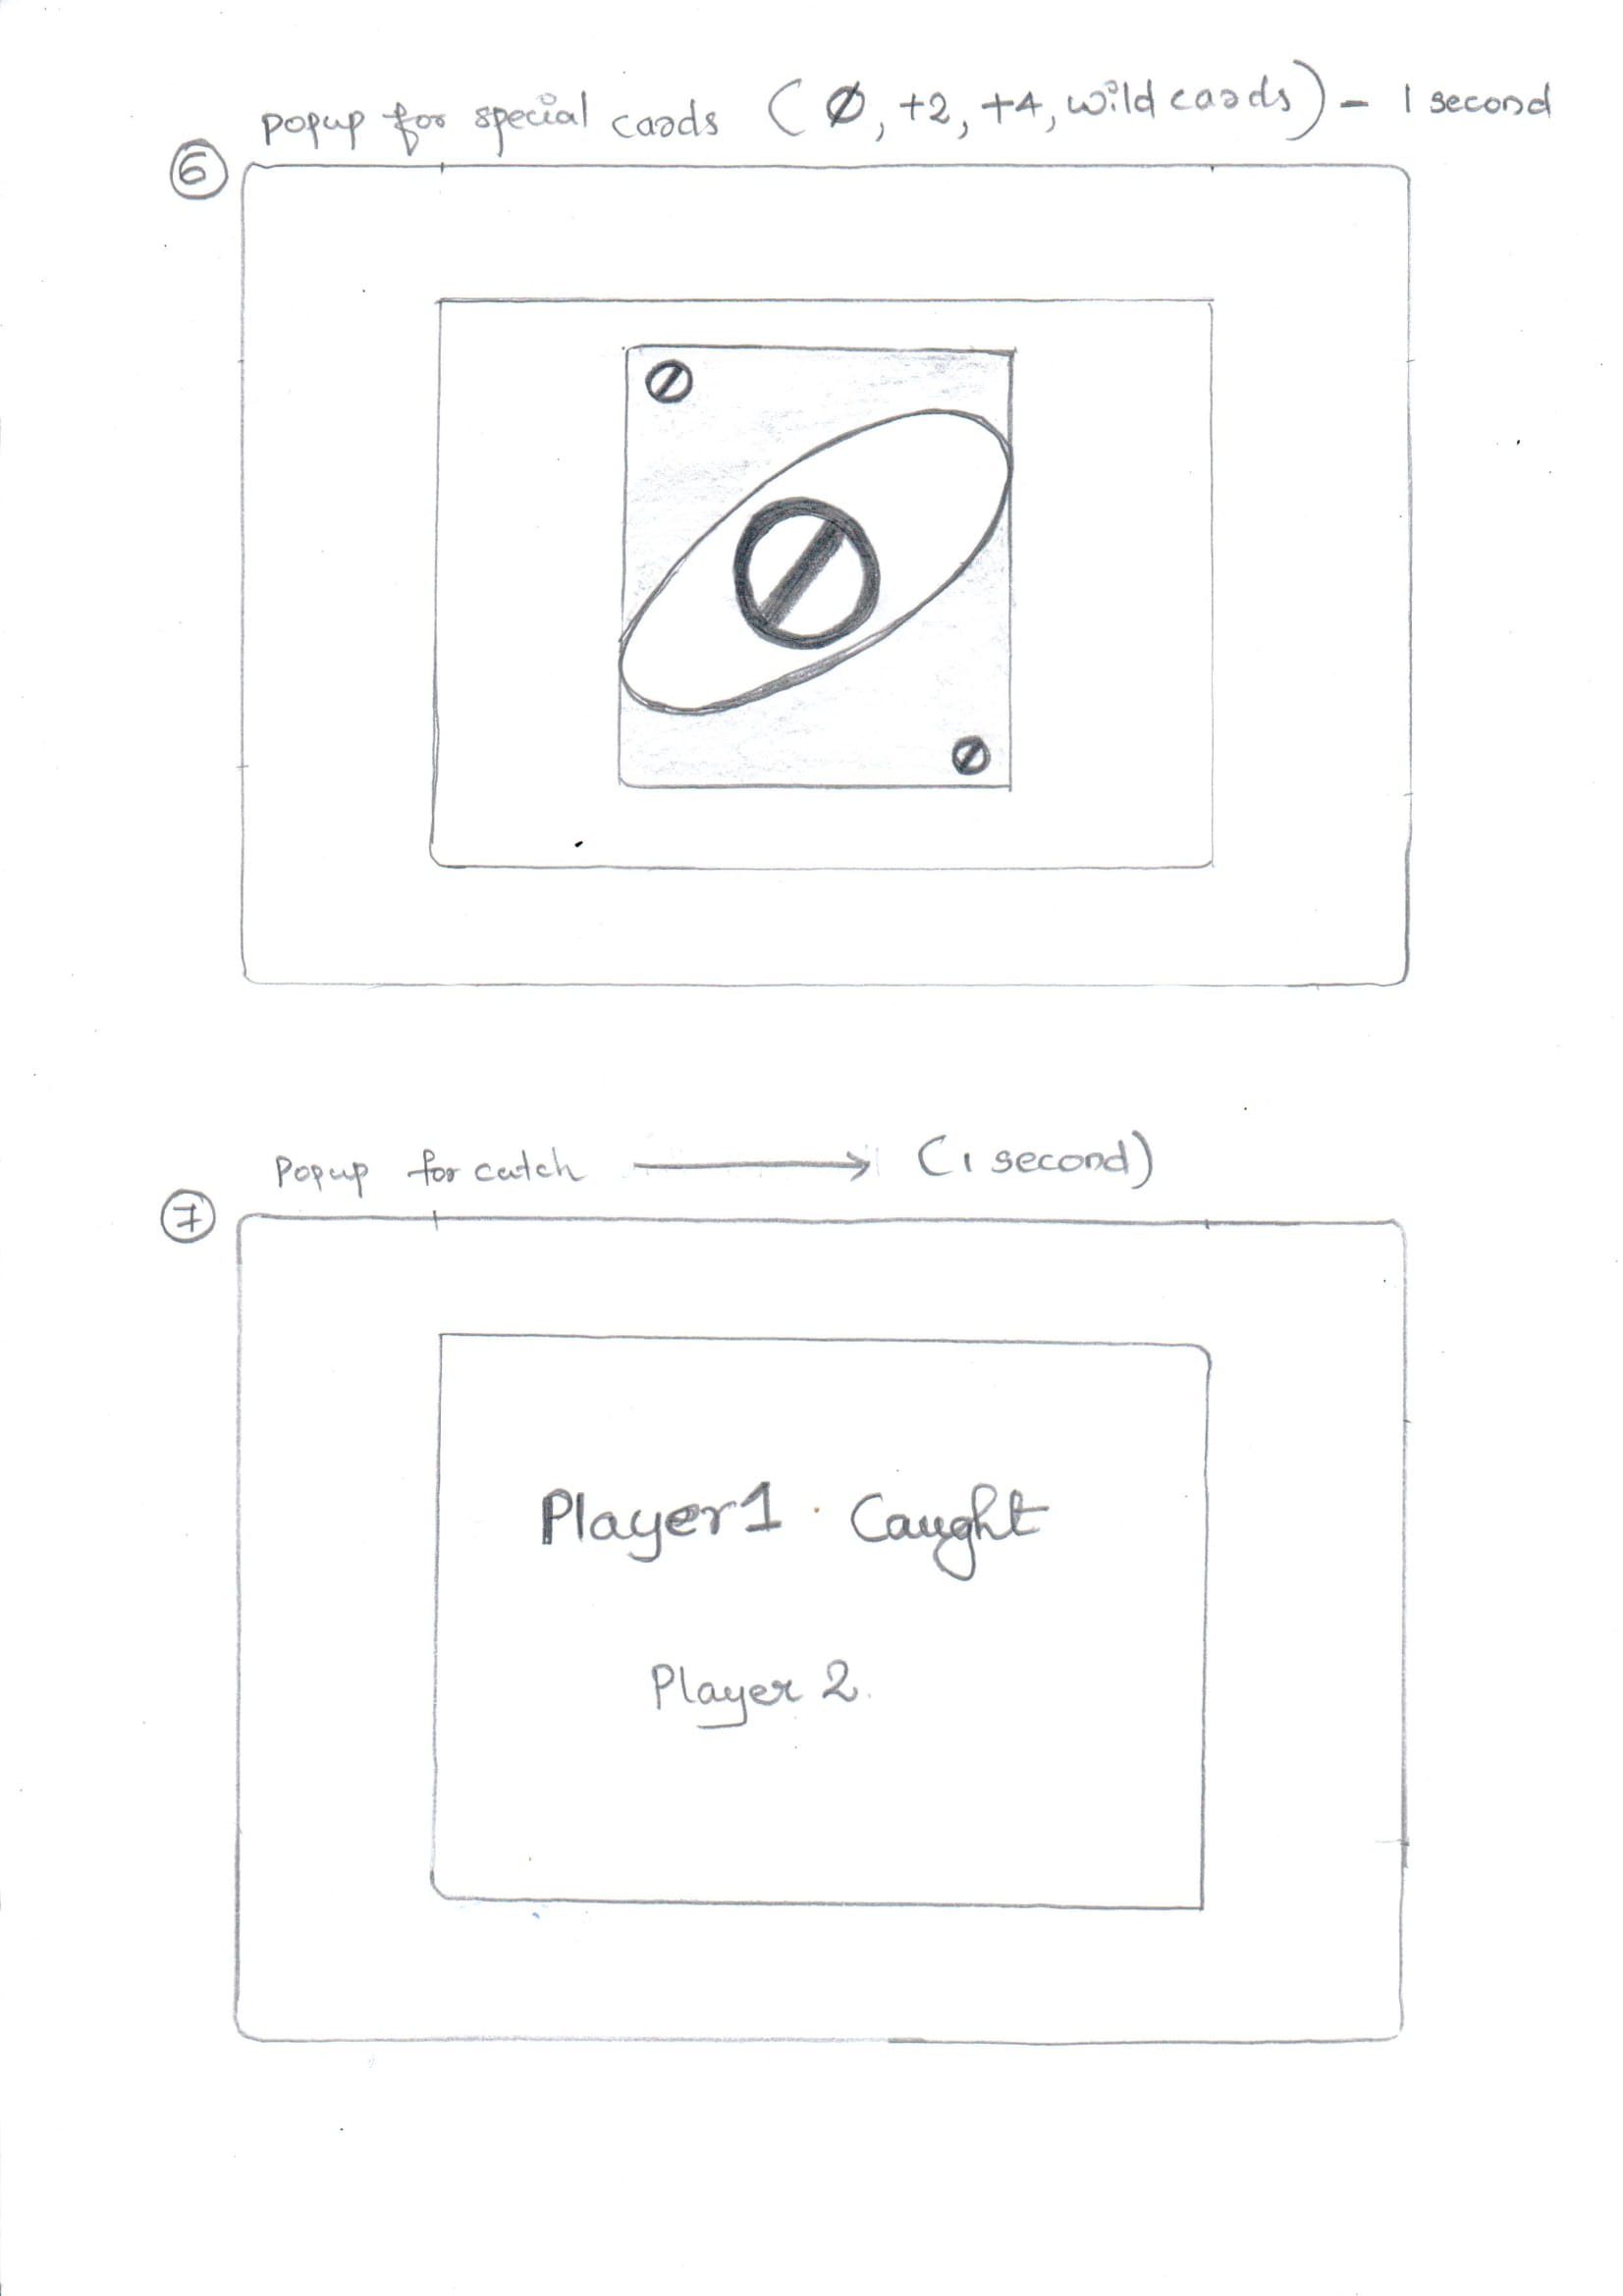 popup for special cards (Ø, +2, +4, wild cards) - 1 second
6
Popup for catch → (1 second)
7
Player1 Caught
Player 2.